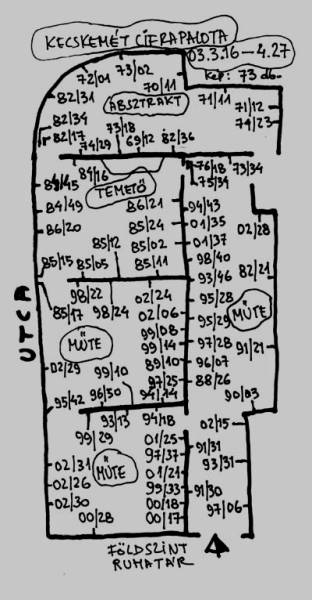 KECSKEMÉT CIFRAPALOTA
03.3.16-4.27
Kép: 73 db.
73/02
72/01
70/11
82/31
ABSZTRAKT
71/11
71/12
71/23
82/34
82/17
73/18
74/29
69/12
82/36
84/16
76/18
73/34
75/34
TEMETŐ
84/45
84/49
86/20
86/21
94/43
85/24
01/35
02/28
85/12
85/02
01/37
98/40
85/15
85/05
85/11
93/46
82/21
98/22
02/24
95/28
85/17
98/24
02/06
95/29
MŰTE
99/08
MŰTE
99/14
97/28
91/21
UTCA
02/29
99/10
89/10
96/07
97/25
88/26
95/42
96/50
94/14
90/03
93/13
94/18
02/15
99/29
01/25
91/31
97/37
93/31
02/31
MŰTE
01/21
02/26
99/33
91/30
02/30
00/18
97/06
00/28
00/17
FÖLDSZINT
RUHATÁR